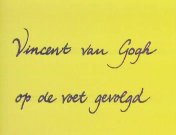 Vincent van Gogh
op de voet gevolgd